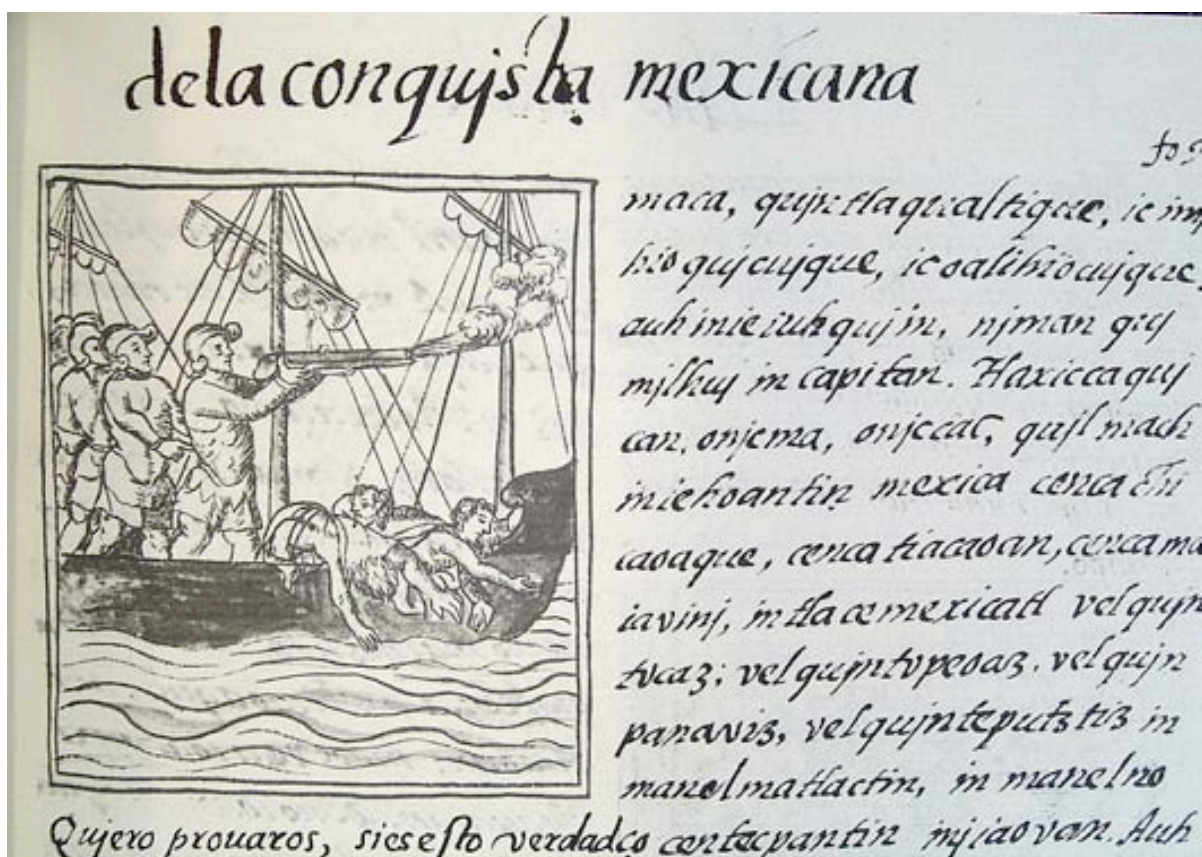 dela conqujsta mexicana
maca, qujntlaqualtique, ic im
hio qujcujque, ic oalihiocujque.
auh in ie iuhquj in, njman quj
milhuj in capitan. Tlaxiccaquj
can, onjcma, onjccac, qujl mach
in iehoantin mexica cenca chi
caoaque, cenca tiacaoan, cenca ma
iavinj, in tla ce mexicatl vel qujn
tvcaz: vel qujntvpeoaz, vel qujn
panaviz, vel qujnteputztiz in
manel matlactin, in manel no
Qujero prouaros, si es esto verdad centecpantin injiaovan. Auh